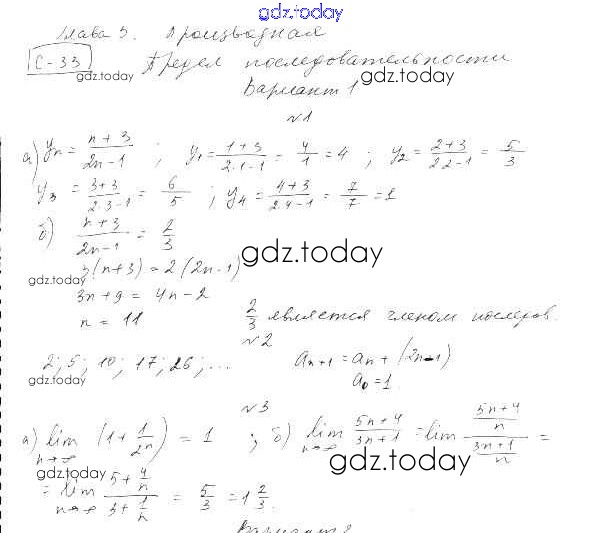 gdz.today
Глава 5. Производная
С-33 Предел последовательности
gdz.today gdz.today
Вариант 1
№1
а) yn = (n+3)/(2n-1) ; y1 = (1+3)/(2·1-1) = 4/1 = 4 ; y2 = (2+3)/(2·2-1) = 5/3
y3 = (3+3)/(2·3-1) = 6/5 ; y4 = (4+3)/(2·4-1) = 7/7 = 1
б) (n+3)/(2n-1) = 2/3
gdz.today
3(n+3) = 2(2n-1)
gdz.today
3n+9 = 4n-2
n = 11 2/3 является членом последов.
№2
2; 5; 10; 17; 26; ... an+1 = an + (2n-1)
gdz.today a0 = 1.
№3
а) lim n→∞ (1 + 1/2n) = 1 ; б) lim n→∞ (5n+4)/(3n+1) = lim ((5n+4)/n)/((3n+1)/n) =
gdz.today gdz.today
= lim n→∞ (5 + 4/n)/(3 + 1/n) = 5/3 = 1 2/3.